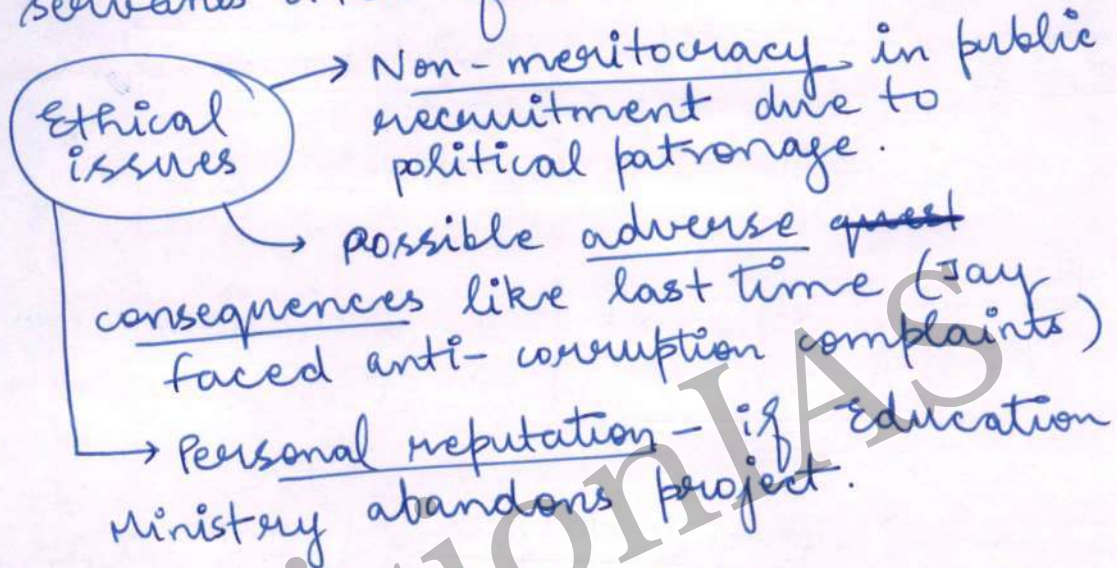 servants
Ethical
issues
→ Non-meritocracy in public
recruitment due to
political patronage.
→ possible adverse quest
consequences like last time (Jay
faced anti-corruption complaints)
→ Personal reputation - if Education
Ministry abandons project.